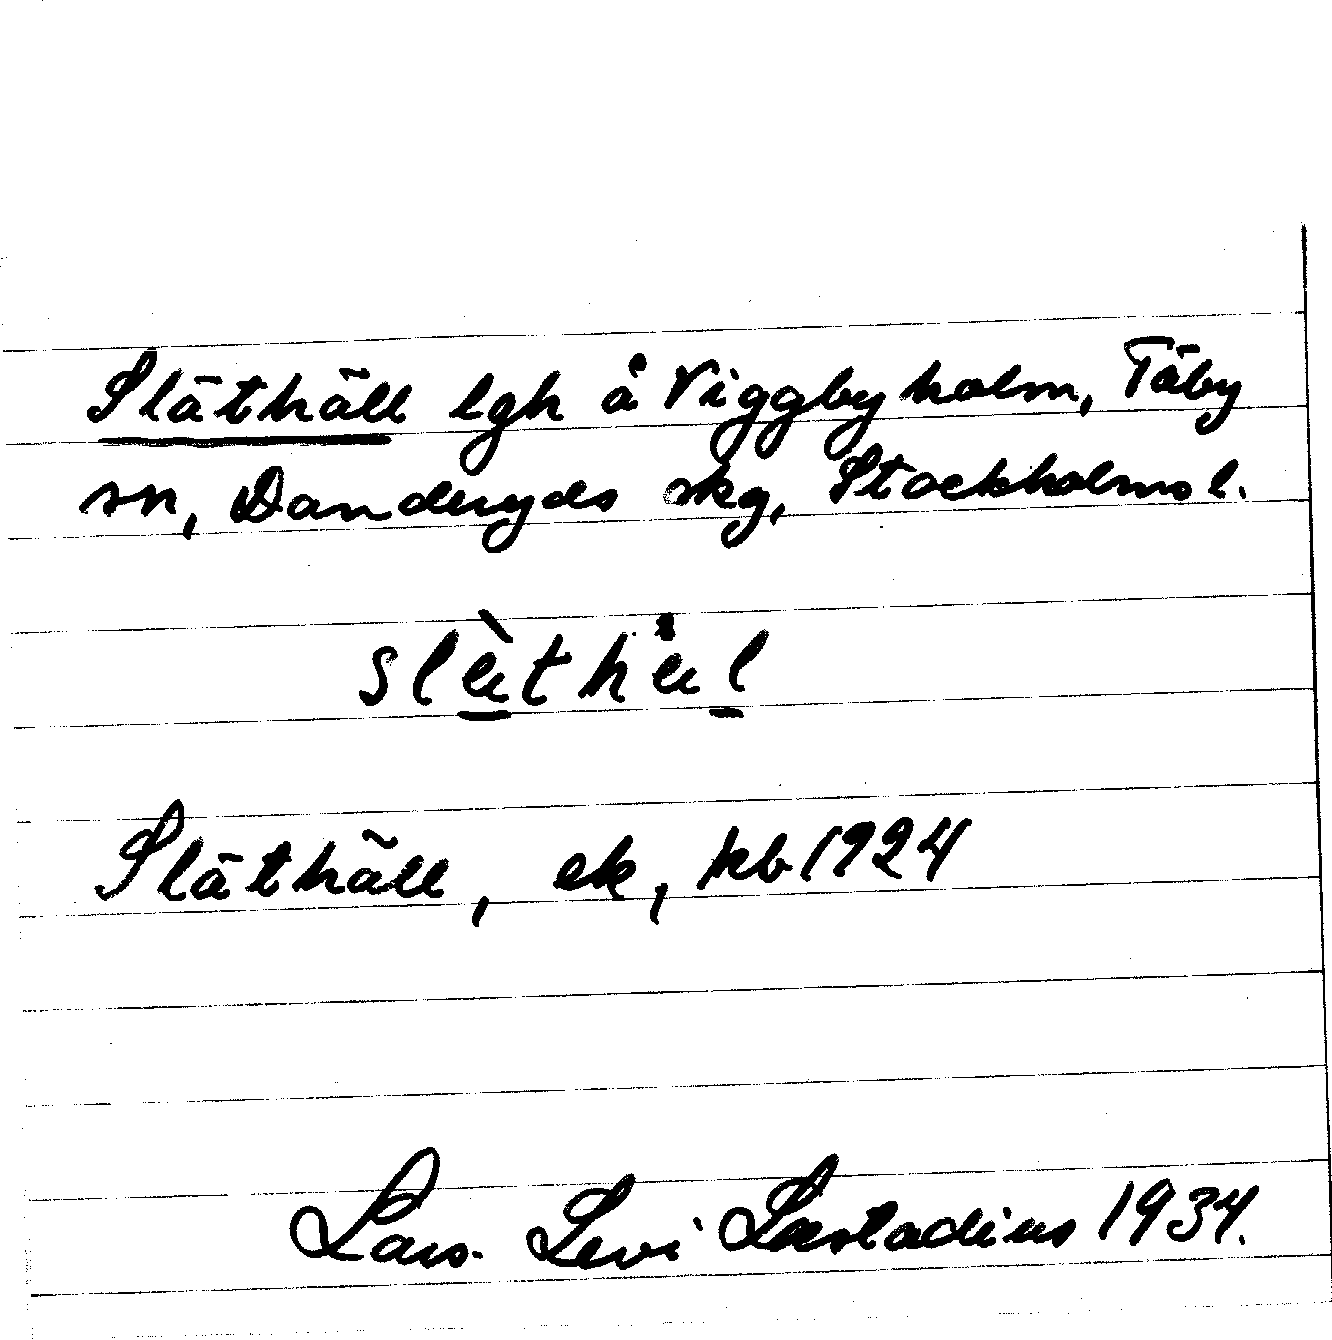 Släthäll lgh å Viggbyholm, Täby
sn, Danderyds skg, Stockholms l.
Släthäll, ek, kb 1924
Lars Levi Læstadius 1934.